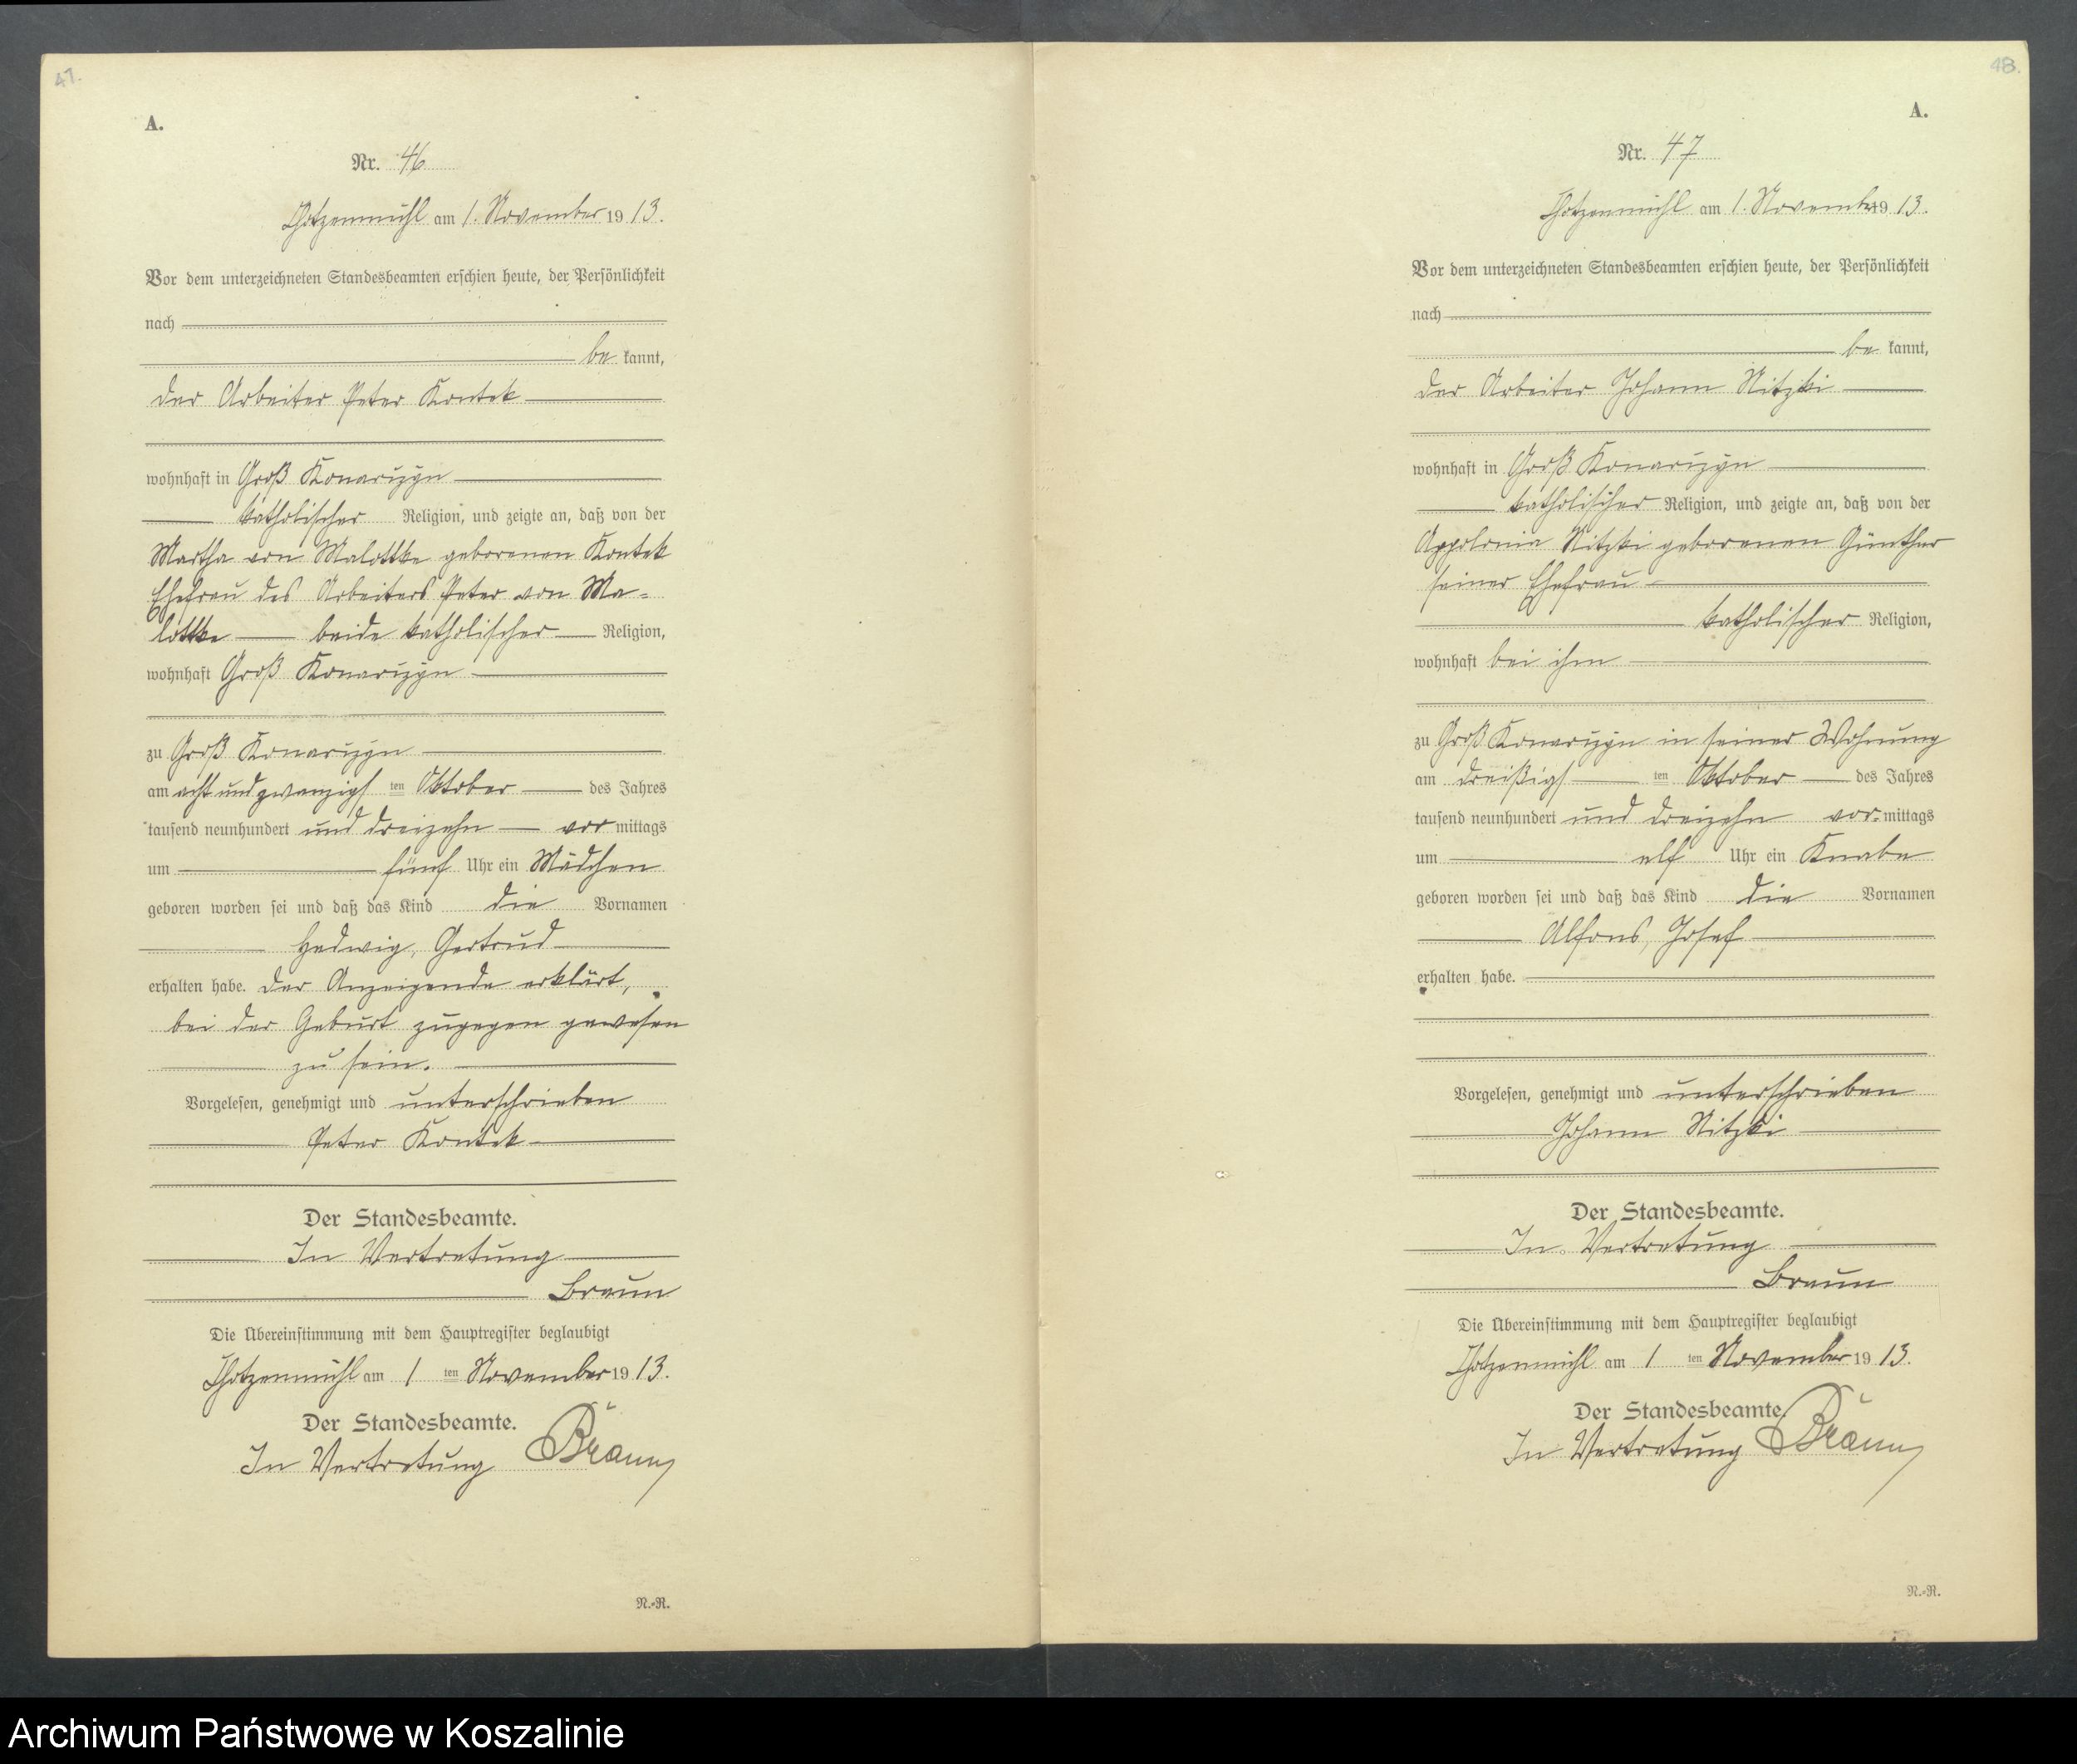 47.
A.
Nr. 46
Chotzenmühl am 1. November 1913.
Vor dem unterzeichneten Standesbeamten erschien heute, der Persönlichkeit
nach
be kannt,
der Arbeiter Peter Kontek
wohnhaft in Groß Konarczyn
katholischer Religion, und zeigte an, daß von der
Martha von Malottke geborenen Kontek
Ehefrau des Arbeiters Peter von Ma=
lottke beide katholischer Religion,
wohnhaft Groß Konarczyn
zu Groß Konarczyn
am acht und zwanzigs ten Oktober des Jahres
tausend neunhundert und dreizehn vor mittags
um fünf Uhr ein Mädchen
geboren worden sei und daß das Kind die Vornamen
Hedwig, Gertrud
erhalten habe. Der Anzeigende erklärt,
bei der Geburt zugegen gewesen
zu sein.
Vorgelesen, genehmigt und unterschrieben
Peter Kontek
Der Standesbeamte.
In Vertretung
Braun
Die Übereinstimmung mit dem Hauptregister beglaubigt
Chotzenmühl am 1 ten November 1913.
Der Standesbeamte.
In Vertretung Braun
N.-R.
48.
A.
Nr. 47
Chotzenmühl am 1. November 1913.
Vor dem unterzeichneten Standesbeamten erschien heute, der Persönlichkeit
nach
be kannt,
der Arbeiter Johann Nitzki
wohnhaft in Groß Konarczyn
katholischer Religion, und zeigte an, daß von der
Appolonia Nitzki geborenen Günther
seiner Ehefrau
katholischer Religion,
wohnhaft bei ihm
zu Groß Konarczyn in seiner Wohnung
am dreißigs ten Oktober des Jahres
tausend neunhundert und dreizehn vor. mittags
um elf Uhr ein Knabe
geboren worden sei und daß das Kind die Vornamen
Alfons, Josef
erhalten habe.
Vorgelesen, genehmigt und unterschrieben
Johann Nitzki
Der Standesbeamte.
In Vertretung
Braun
Die Übereinstimmung mit dem Hauptregister beglaubigt
Chotzenmühl am 1 ten November 1913.
Der Standesbeamte.
In Vertretung Braun
N.-R.
Archiwum Państwowe w Koszalinie